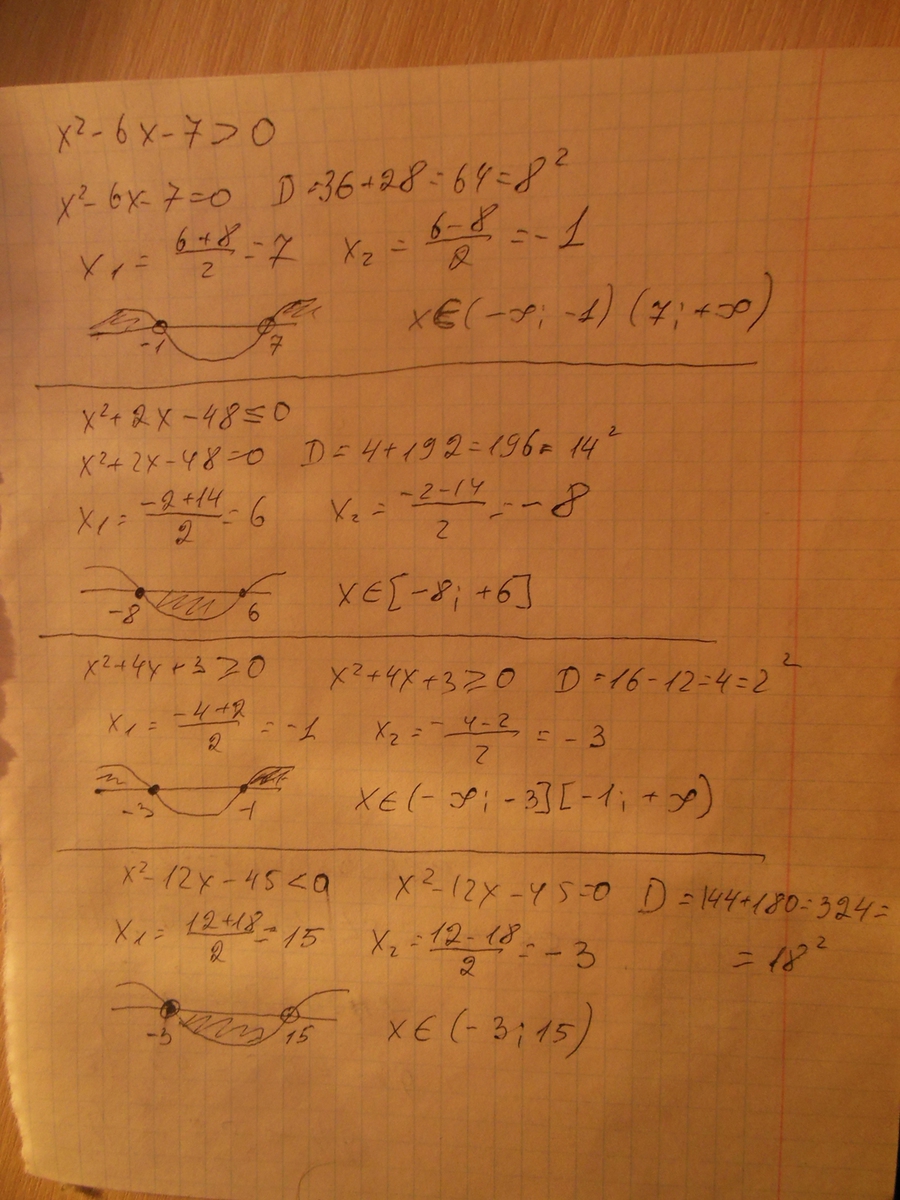 x²-6x-7>0
x²-6x-7=0 D=36+28=64=8²
x₁=(6+8)/2=7 x₂=(6-8)/2=-1
-1 7 x∈(-∞;-1) (7;+∞)
x²+2x-48≤0
x²+2x-48=0 D=4+192=196=14²
x₁=(-2+14)/2=6 x₂=(-2-14)/2=-8
-8 6 x∈[-8;+6]
x²+4x+3≥0 x²+4x+3≥0 D=16-12=4=2²
x₁=(-4+2)/2=-1 x₂=(-4-2)/2=-3
-3 -1 x∈(-∞;-3][-1;+∞)
x²-12x-45<0 x²-12x-45=0 D=144+180=324=
x₁=(12+18)/2=15 x₂=(12-18)/2=-3 =18²
-3 15 x∈(-3;15)